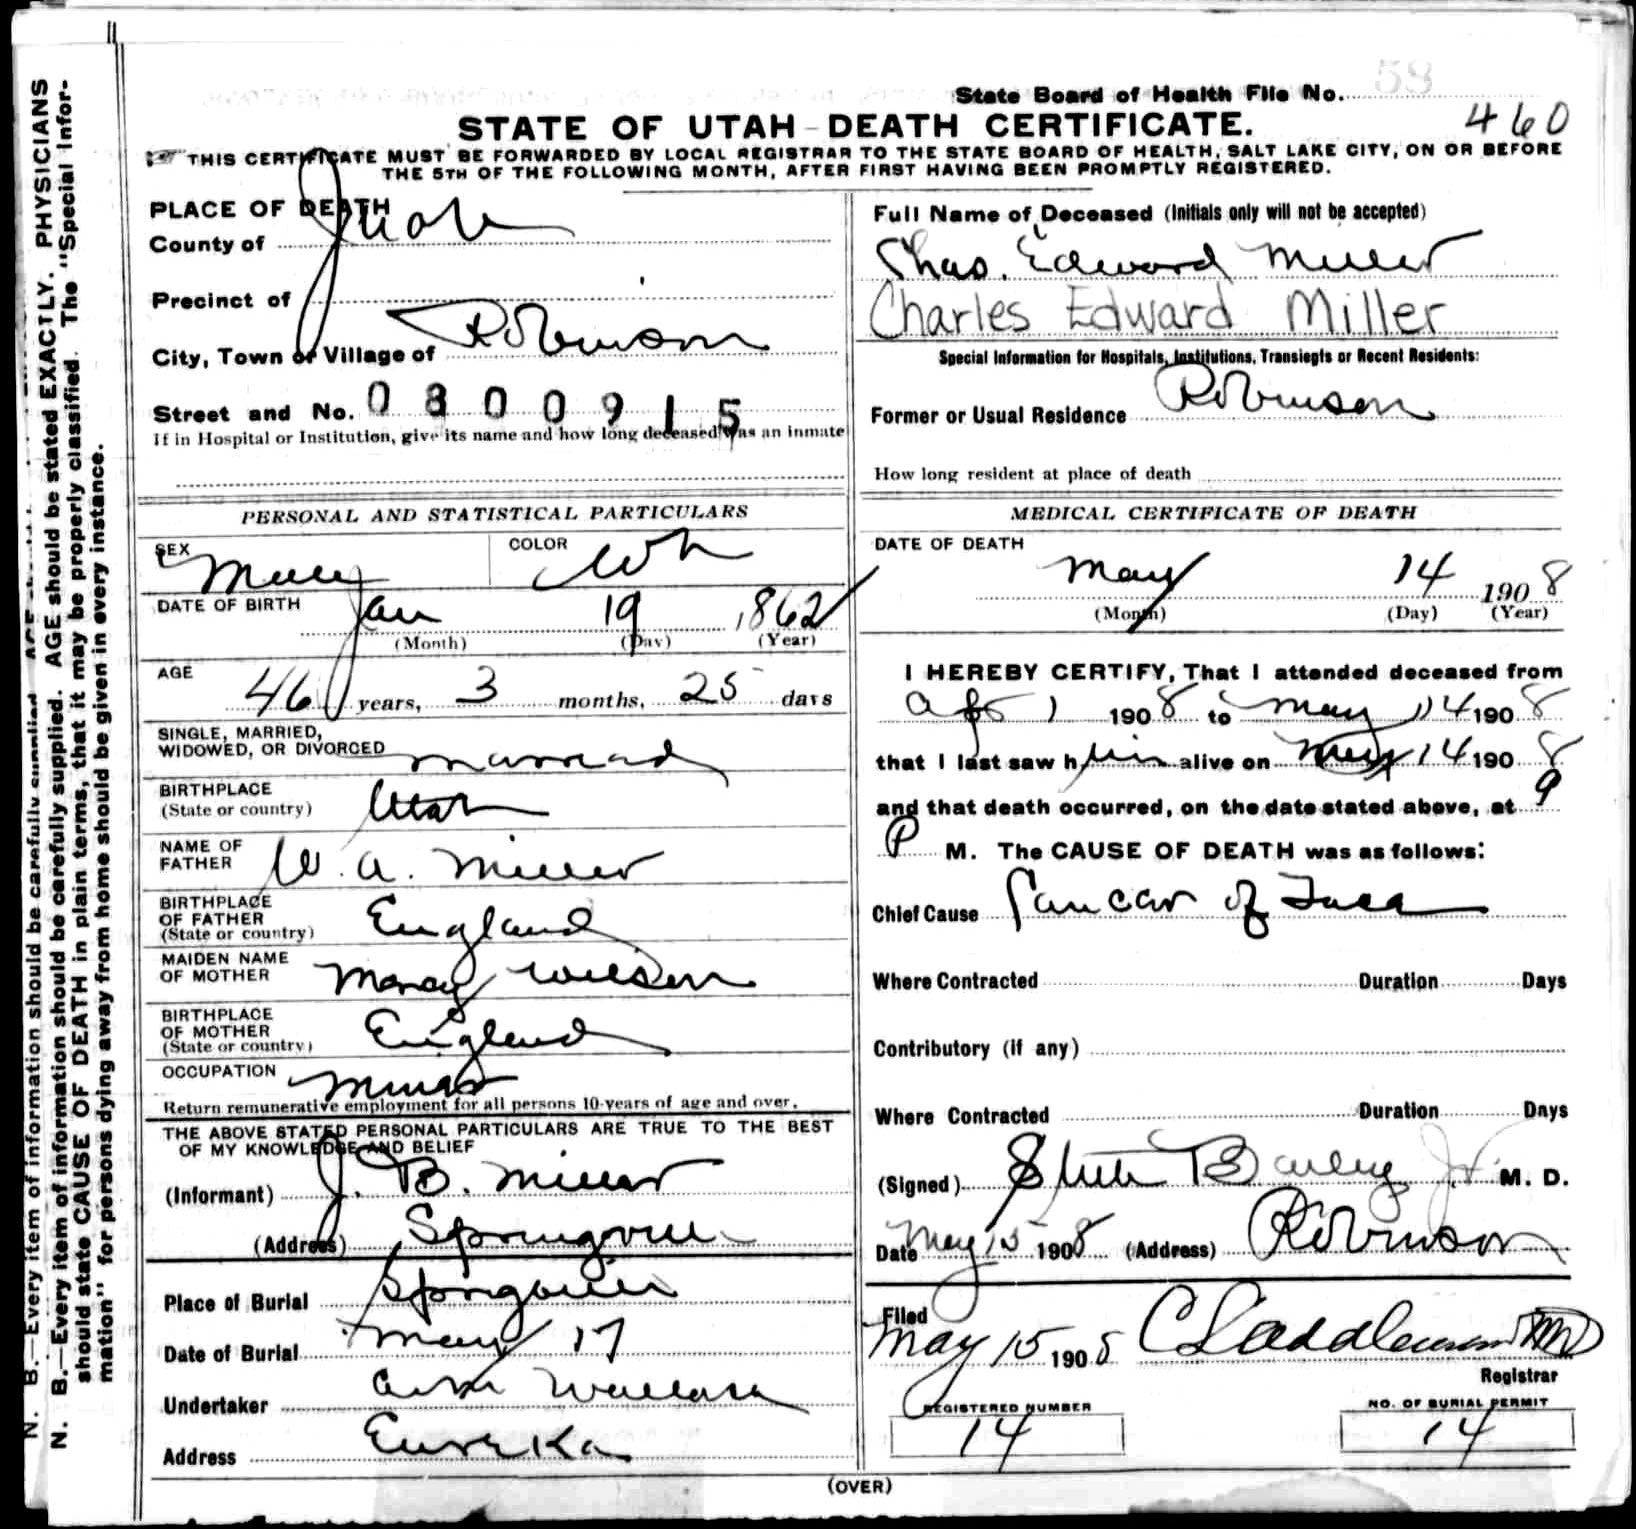 58
State Board of Health File No.
460
STATE OF UTAH - DEATH CERTIFICATE.
THIS CERTIFICATE MUST BE FORWARDED BY LOCAL REGISTRAR TO THE STATE BOARD OF HEALTH, SALT LAKE CITY, ON OR BEFORE
THE 5TH OF THE FOLLOWING MONTH, AFTER FIRST HAVING BEEN PROMPTLY REGISTERED.
PLACE OF DEATH
County of Juab
Precinct of
City, Town or Village of Robinson
Street and No. 0300915
If in Hospital or Institution, give its name and how long deceased was an inmate
Full Name of Deceased (Initials only will not be accepted)
Chas. Edward Miller
Charles Edward Miller
Special Information for Hospitals, Institutions, Transients or Recent Residents:
Former or Usual Residence Robinson
How long resident at place of death
PERSONAL AND STATISTICAL PARTICULARS
SEX Male COLOR Wh
DATE OF BIRTH Jan 19 1862
(Month) (Day) (Year)
AGE 46 years, 3 months, 25 days
SINGLE, MARRIED,
WIDOWED, OR DIVORCED Married
BIRTHPLACE
(State or country) Utah
NAME OF
FATHER W. A. Miller
BIRTHPLACE
OF FATHER
(State or country) England
MAIDEN NAME
OF MOTHER Wilson
BIRTHPLACE
OF MOTHER
(State or country) England
OCCUPATION Miner
Return remunerative employment for all persons 10-years of age and over.
THE ABOVE STATED PERSONAL PARTICULARS ARE TRUE TO THE BEST
OF MY KNOWLEDGE AND BELIEF
(Informant) J. B. Miller
(Address) Springville
Place of Burial Springville
Date of Burial May 17
Undertaker
Address Eureka
MEDICAL CERTIFICATE OF DEATH
DATE OF DEATH
May 14 1908
(Month) (Day) (Year)
I HEREBY CERTIFY, That I attended deceased from
Apr 1 1908 to May 14 1908
that I last saw him alive on May 14 1908
and that death occurred, on the date stated above, at 9
P M. The CAUSE OF DEATH was as follows:
Chief Cause Cancer of Face
Where Contracted Duration Days
Contributory (if any)
Where Contracted Duration Days
(Signed) Steele Bailey Jr. M. D.
Date May 15 1908 (Address) Robinson
Filed
May 15 1908
Registrar
REGISTERED NUMBER
14
NO. OF BURIAL PERMIT
14
(OVER)
N. B.—Every item of information should be carefully supplied. AGE should be stated EXACTLY. PHYSICIANS
should state CAUSE OF DEATH in plain terms, that it may be properly classified. The "Special Infor-
mation" for persons dying away from home should be given in every instance.